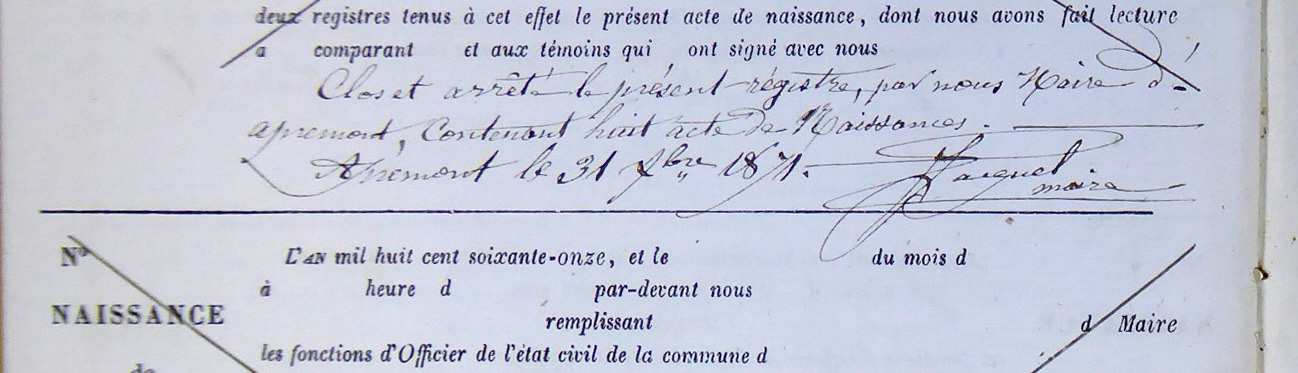 deux registres tenus à cet effet le présent acte de naissance, dont nous avons fait lecture
a comparant et aux témoins qui ont signé avec nous
Clos et arrêté le présent régistre, par nous Maire d'
apremont, Contenant huit acte de Naissances.
Apremont le 31 Xbre 1871.
Jacquet
maire
N° L'AN mil huit cent soixante-onze, et le du mois d
à heure d par-devant nous
NAISSANCE
remplissant d Maire
les fonctions d'Officier de l'état civil de la commune d
de